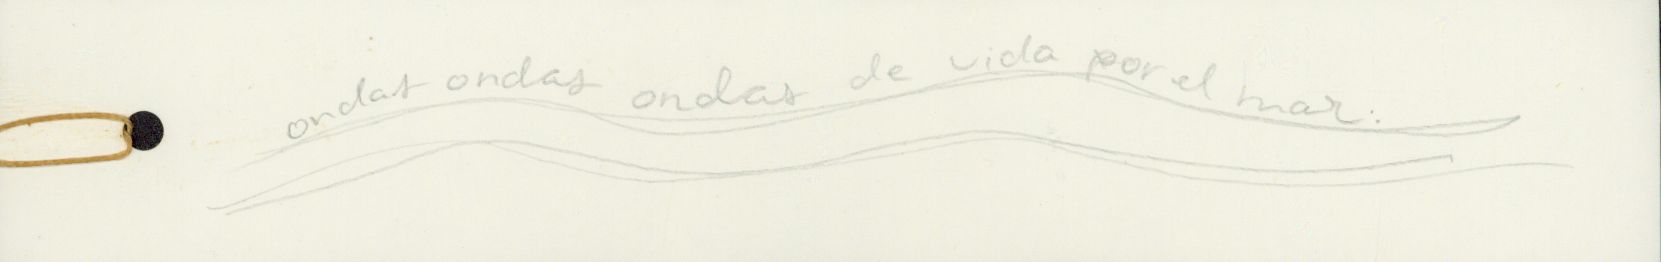 ondas ondas ondas de vida por el mar.